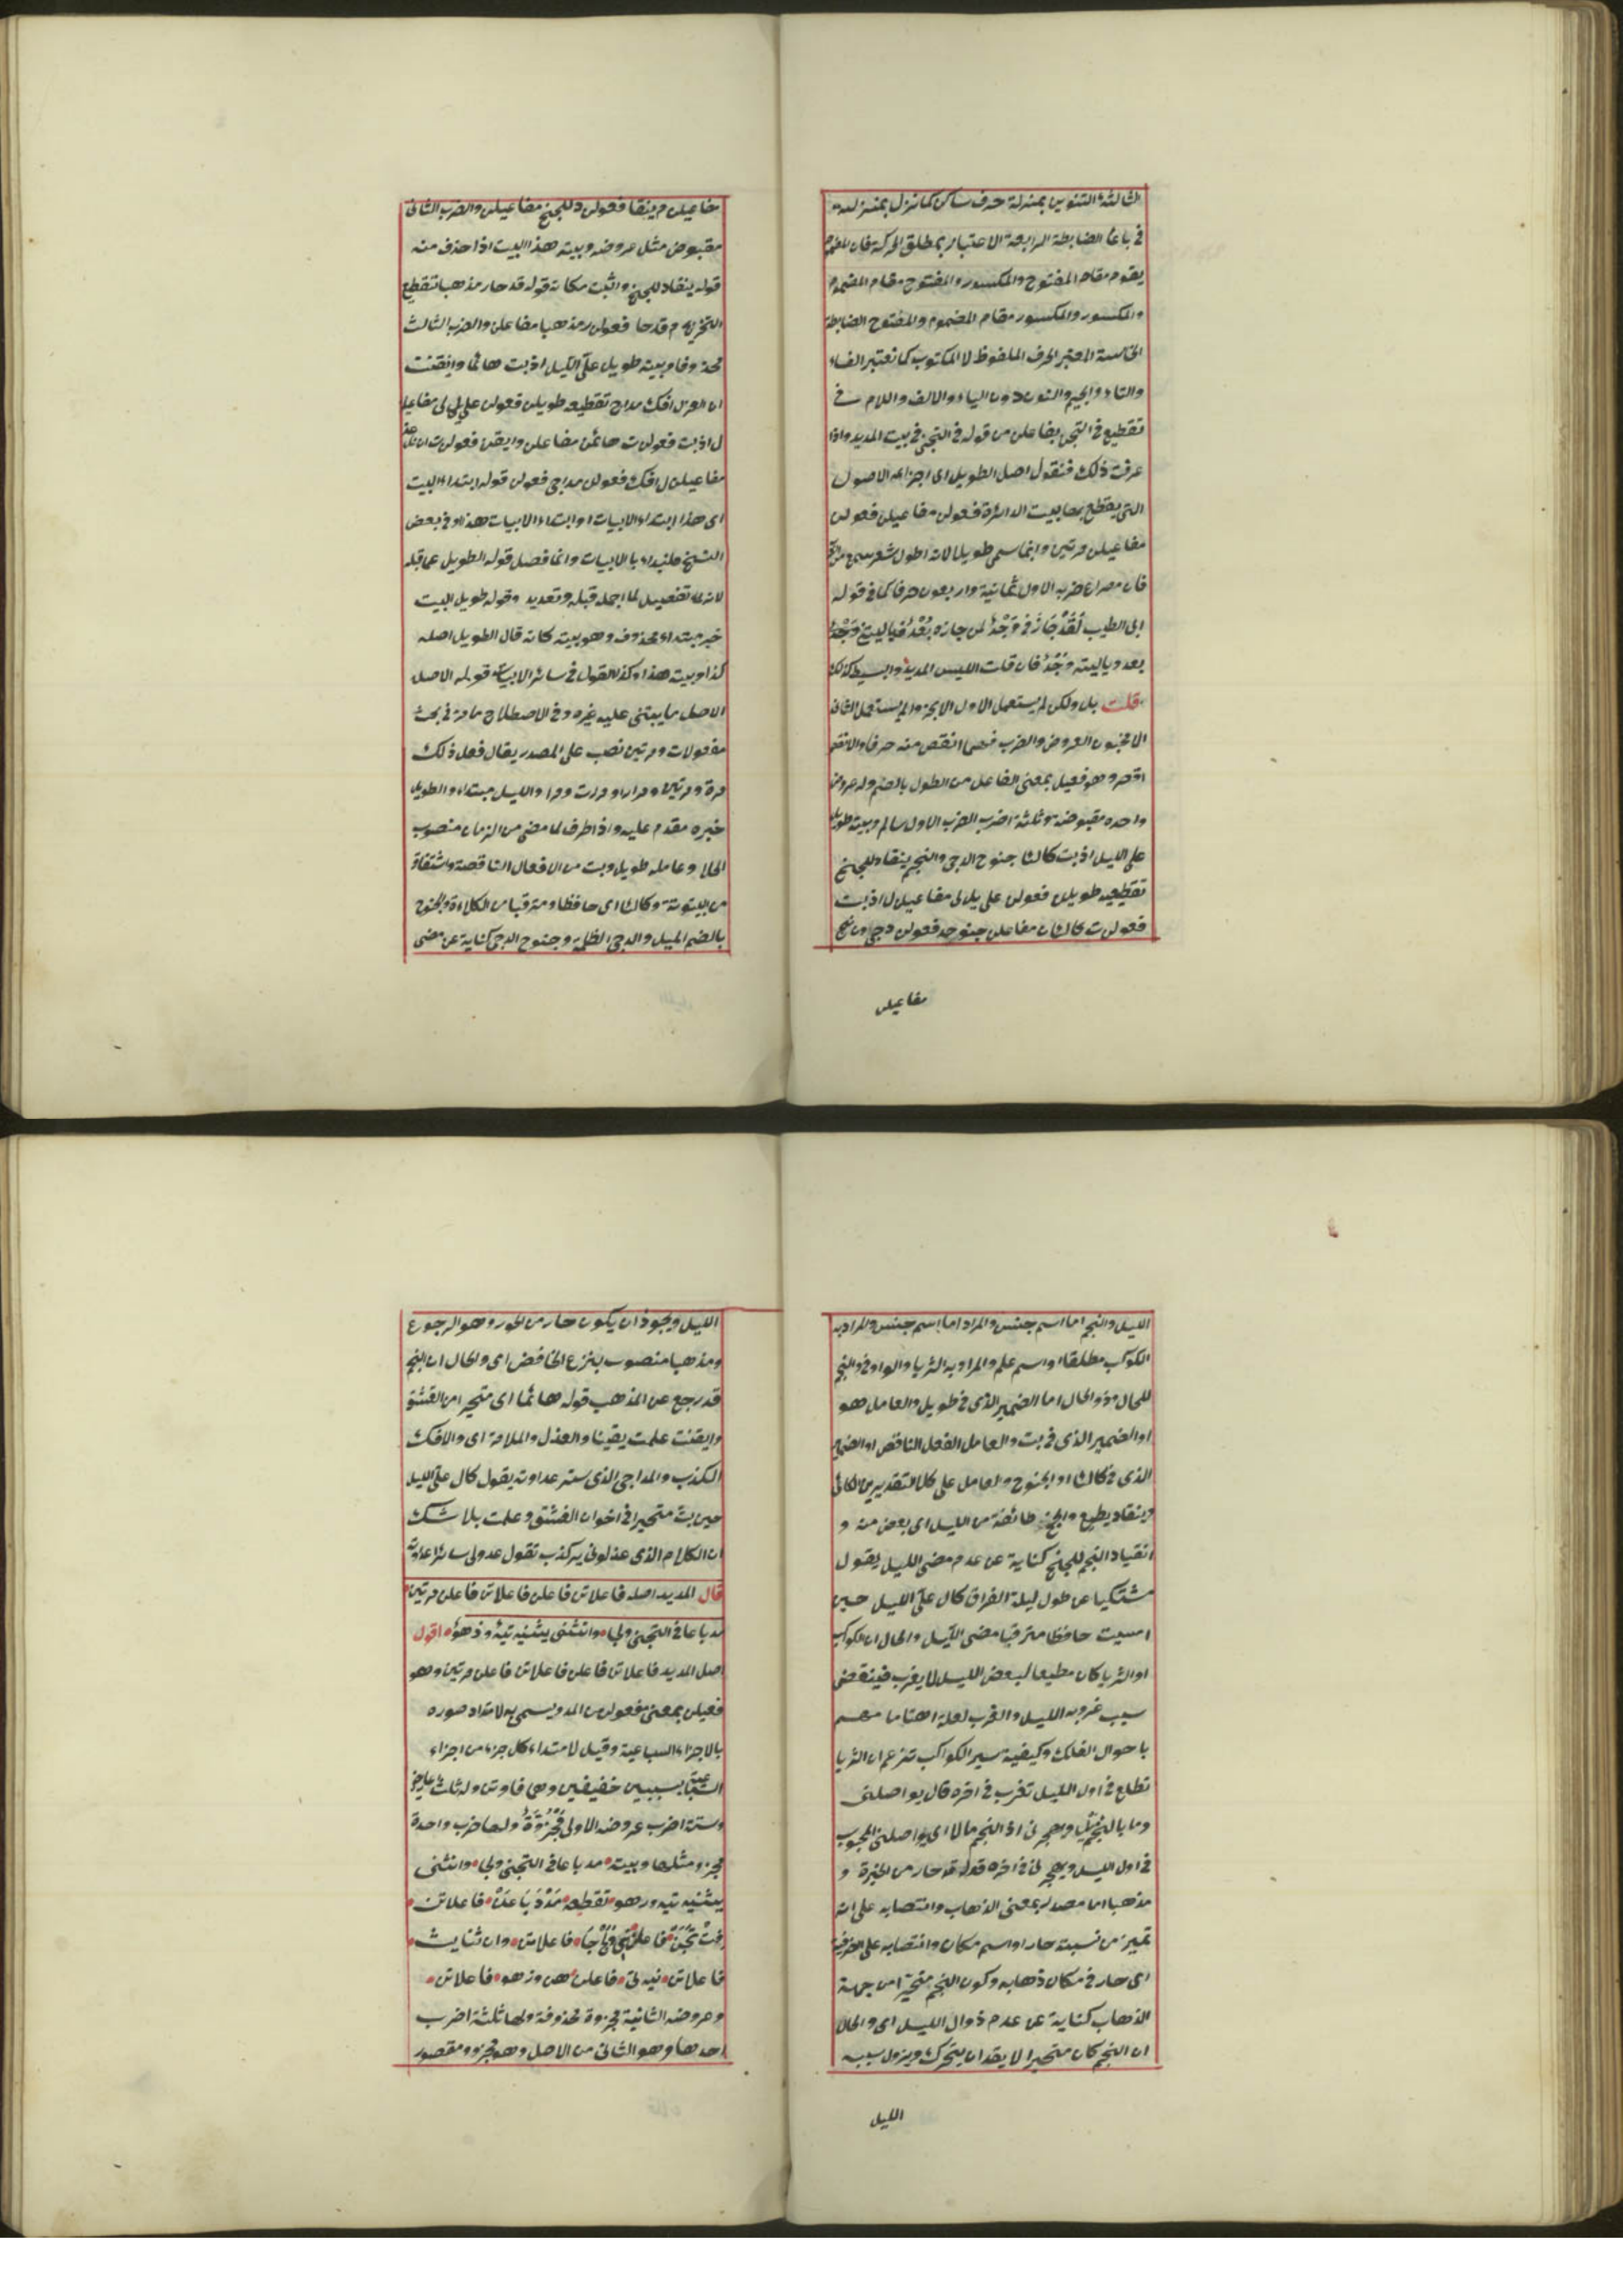 الثالثة التنوين بمنزلة حرف ساكن كما نزل بمنزلته
في باعا الضابطة الرابعة الاعتبار بمطلق الحركة فان المضموم
يقوم مقام المفتوح والمكسور والمفتوح مقام المضموم
والمكسور والمكسور مقام المضموم والمفتوح الضابطة
الخامسة المعتبر الحرف الملفوظ لا المكتوب كما نعتبر الفاء
والتاء والجيم والنون دون الياء والالف واللام في
تقطيع في التجن بفاعلن من قوله في التجني في بيت المديد واذا
عرفت ذلك فنقول اصل الطويل اى اجزاءه الاصول
التي يقطع بها بيت الدائرة فعولن مفاعيلن فعولن
مفاعيلن مرتين وانما سمى طويلا لانه اطول شعر سمع من
فان مصراع ضربه الاول ثمانية واربعون حرفا كما في قوله
ابى الطيب لقد حاز في وجد لمن حازه بعد فيا ليتني وجد
بعد ويا ليته وجد فان قلت اليس المديد والبسيط كذلك
قلت بل ولكن لم يستعمل الاول الا مجزوا ولم يستعمل الثاني
الا مخبون العروض والضرب فهما انقص منه حرفا والانقص
اقصر وهو فعيل بمعنى الفاعل من الطول بالضم وله عروض
واحدة مقبوضة وثلثة اضرب الضرب الاول سالم وبيته طويل
على الليل اذ بت كالئا جنوح الدجى والنجم ينقاد للجنح
تقطيعه طويلن فعولن على يللى مفاعيلن ل اذ بت
فعول ت كالئان مفاعلن جنوحد فعولن دجى ون نج
مفاعيلن
مفاعيلن م ينقا فعولن د للجنح مفاعيلن والضرب الثاني
مقبوض مثل عروضه وبيته هذا البيت اذا حذف منه
قوله ينقاد للجنح واثبت مكانه قوله قد حار مذهبا تقطيع
التخريه م قد حا فعولن ر مذهبا مفاعلن والضرب الثالث
محذوف وبيته طويل على الليل اذ بت هائما وايقنت
ان العذل افك مداج تقطيعه طويلن فعولن على يللى مفاعيلن
ل اذ بت فعول ت هائمن مفاعلن وايقن فعول ت ان نلعذ
مفاعيلن ل افك فعولن مداجى فعولن قوله ابتداء البيت
اى هذا ابتداء الابيات او ابتداء الابيات هذا وفي بعض
النسخ فلنبداء بالابيات وانما فصل قوله الطويل عما قبله
لانه تفصيل لما اجمل قبله وتعديد وقوله طويل البيت
خبر مبتداء محذوف وهو بيته كانه قال الطويل اصله
كذا وبيته هذا وكذا القول في سائر الابيات قوله الاصل
الاصل ما يبتنى عليه غيره وفي الاصطلاح ما مر في بحث
مفعولات ومرتين نصب على المصدر يقال فعل ذلك
مرة ومرتين ومرارا ومرات ومرا والليل مبتداء والطويل
خبره مقدم عليه واذ اظرف لما مضى من الزمان منصوب
المحل وعامله طويل وبت من الافعال الناقصة واشتقاقه
من البيتوتة وكالئا اى حافظا ومترقبا من الكلاءة والجنوح
بالضم الميل والدجى الظلمة وجنوح الدجى كناية عن مضى
الليل والنجم اما اسم جنس والمراد اما اسم جنس والمراد به
الكوكب مطلقا او اسم علم والمراد به الثريا والواو في والنجم
للحال وذو الحال اما الضمير الذى في طويل والعامل هو
او الضمير الذى في بت والعامل الفعل الناقص او الضمير
الذى في كالئا او الجنوح والعامل على كلا التقديرين كالئا
وينقاد يطيع والجنح طائفة من الليل اى بعض منه و
انقياد النجم للجنح كناية عن عدم مضى الليل يقول
مشتكيا عن طول ليلة الفراق كال على الليل حين
امسيت حافظا مترقبا مضى الليل والحال ان الكوكب
او الثريا كان مطيعا لبعض الليل لا يغرب فينقضى
سبب غروبه الليل والعرب لعلة اهتمامهم
باحوال الفلك وكيفية سير الكواكب تزعم ان الثريا
تطلع في اول الليل تغرب في اخره قال يواصلنى
وما بالنجم ليل ويهجرنى اذا النجم مالا اى يواصلنى المحبوب
في اول الليل ويهجرنى في اخره قوله قد حار من الحيرة و
مذهبا اما مصدر بمعنى الذهاب وانتصابه على انه
تمييز من نسبة حار او اسم مكان وانتصابه على الظرفية
اى حار في مكان ذهابه وكون النجم متحيرا من جهة
الذهاب كناية عن عدم زوال الليل اى والحال
ان النجم كان متحيرا لا يقدر ان يتحرك ويزول سببه
الليل
الليل ويجوز ان يكون حار من الحور وهو الرجوع
ومذهبا منصوب بنزع الخافض اى والحال ان النجم
قد رجع عن المذهب قوله هائما اى متحيرا من العشق
وايقنت علمت يقينا والعذل والملامة اى والافك
الكذب والمداجى الذى ستر عداوته يقول كال على الليل
حين بت متحيرا في اخوان العشق وعلمت بلا شك
ان الكلام الذى عذلونى به كذب تقول عدولى ساتر عداوته
قال المديد اصله فاعلاتن فاعلن فاعلاتن فاعلن مرتين
مد باعا في التجنى ولجا وانثنى يثنيه تيه وزهو اقول
اصل المديد فاعلاتن فاعلن فاعلاتن فاعلن مرتين وهو
فعيلن بمعنى مفعول من المد ويسمى به لامتداد صوره
بالاجزاء السباعية وقيل لامتداء كل جزء من اجزاء
السباعية بسببين خفيفين وهى فا وتن وله ثلث اعاريض
وستة اضرب عروضه الاولى مجزوة ولها ضرب واحدة
مجزوء مثلها وبيته مد باعا في التجنى ولجا وانثنى
يثنيه تيه وزهو تقطيعه مدد باعن فاعلاتن
فتتجن فاعلن نى ولججا فاعلاتن وان ثنا يث
فاعلاتن نيه تى فاعلن هن وزهو فاعلاتن
وعروضه الثانية مجزوة محذوفة ولها ثلثة اضرب
احدها وهو الثانى من الاصل وهو مجزو ومقصور